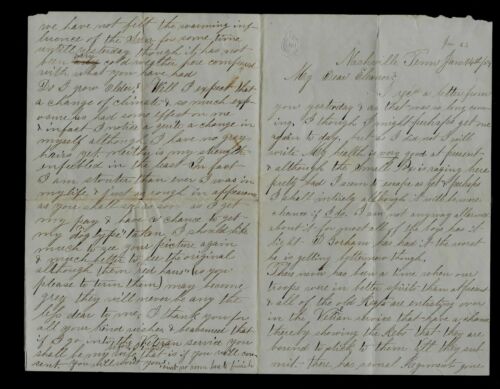 Nashville Tenn Jan 14th/64
My Dear Eleanor:
I got a letter from
you yesterday & as that was so long com-
ing, I though I might perhaps get one
again to day, but as I do not I will
write. My health is very good at present
& although the Small Pox is raging here
pretty bad I seem to escape as yet & perhaps
I shall entirely although I will have a
chance if I do. I am not anyway allarmed
about it for most all of the boys has it
light. D Gorham has had it the worst
he is getting better now though.
There never has been a time when our
troops were in better spirits than at present
& all of the old Regts are enlisting over
in the Vetran service that have a chance
thereby showing the Rebs that they are
bound to stick to them till they sub-
mit - there has several Regiments gone
we have not felt the warming in-
fluence of the Sun for some time
untill yesterday though it has not
been very cold weather here compared
with what you have had
Do I grow Older? Well I expect that
a change of climate & so much exp-
osure has had some effect on me
& infact I notice quite a change in
myself although I have no gray
hairs yet neither is my strength
enfeebled in the least In fact
I am stouter than ever I was in
my life & just as rough in appearance
as you shall see as soon as I get
my pay & have a chance to get
my dogtype taken I should like
much to see your picture again
& much better to see the original
although them red hairs (as you
please to term them) may become
grey they will never be any the
less dear to me. I thank you for
all your kind wishes & be assured that
if I go into the Vetran service you
shall be my wife that is if you will con-
sent